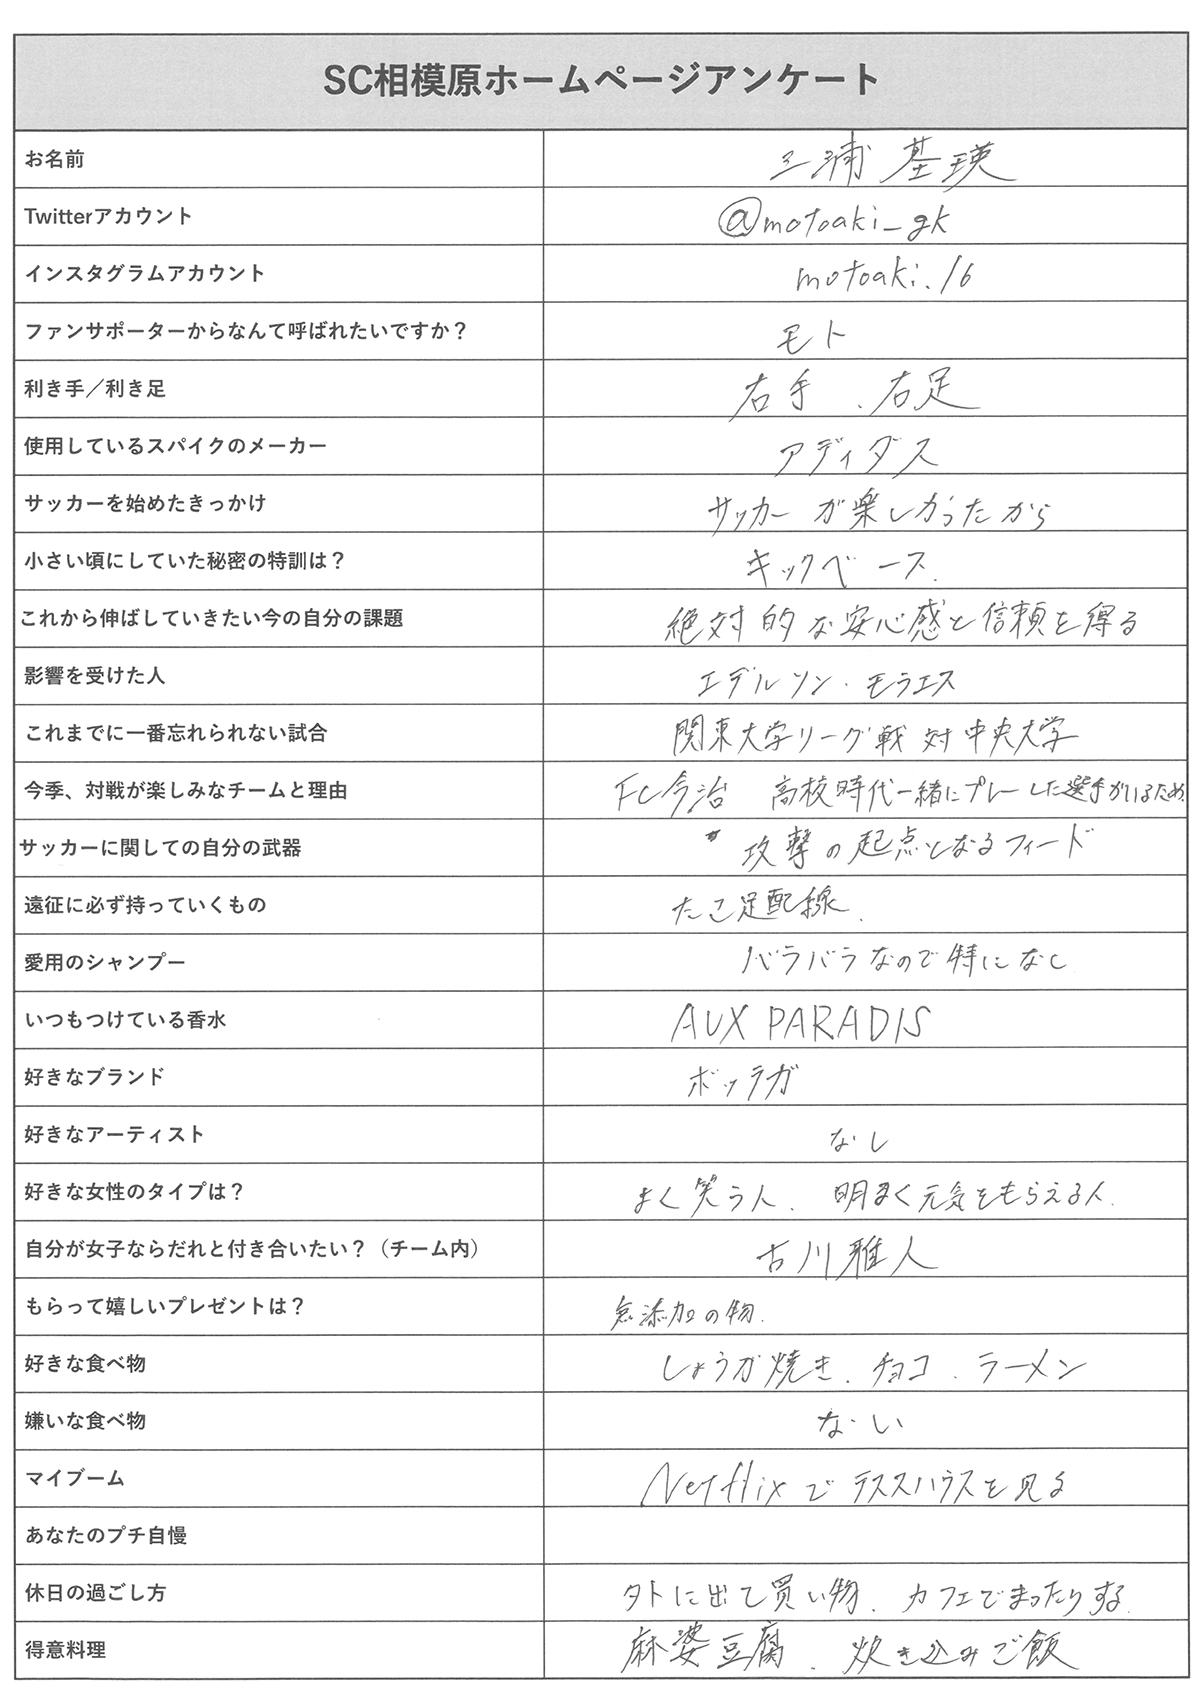 SC相模原ホームページアンケート
お名前 三浦 基瑛
Twitterアカウント @motoaki_gk
インスタグラムアカウント motoaki.16
ファンサポーターからなんて呼ばれたいですか？ モト
利き手／利き足 右手、右足
使用しているスパイクのメーカー アディダス
サッカーを始めたきっかけ サッカーが楽しかったから
小さい頃にしていた秘密の特訓は？ キックベース.
これから伸ばしていきたい今の自分の課題 絶対的な安心感と信頼を得る
影響を受けた人 エデルソン・モラエス
これまでに一番忘れられない試合 関東大学リーグ戦 対 中央大学
今季、対戦が楽しみなチームと理由 FC今治 高校時代一緒にプレーした選手がいるため
サッカーに関しての自分の武器 攻撃の起点となるフィード
遠征に必ず持っていくもの たこ足配線.
愛用のシャンプー バラバラなので特になし
いつもつけている香水 AUX PARADIS
好きなブランド ボッテガ
好きなアーティスト なし
好きな女性のタイプは？ よく笑う人、 明るく元気をもらえる人.
自分が女子ならだれと付き合いたい？（チーム内） 古川雅人
もらって嬉しいプレゼントは？ 無添加の物.
好きな食べ物 しょうが焼き、チョコ、ラーメン
嫌いな食べ物 ない
マイブーム Netflixでテラスハウスを見る
あなたのプチ自慢
休日の過ごし方 外に出て買い物、カフェでまったりする.
得意料理 麻婆豆腐、炊き込みご飯